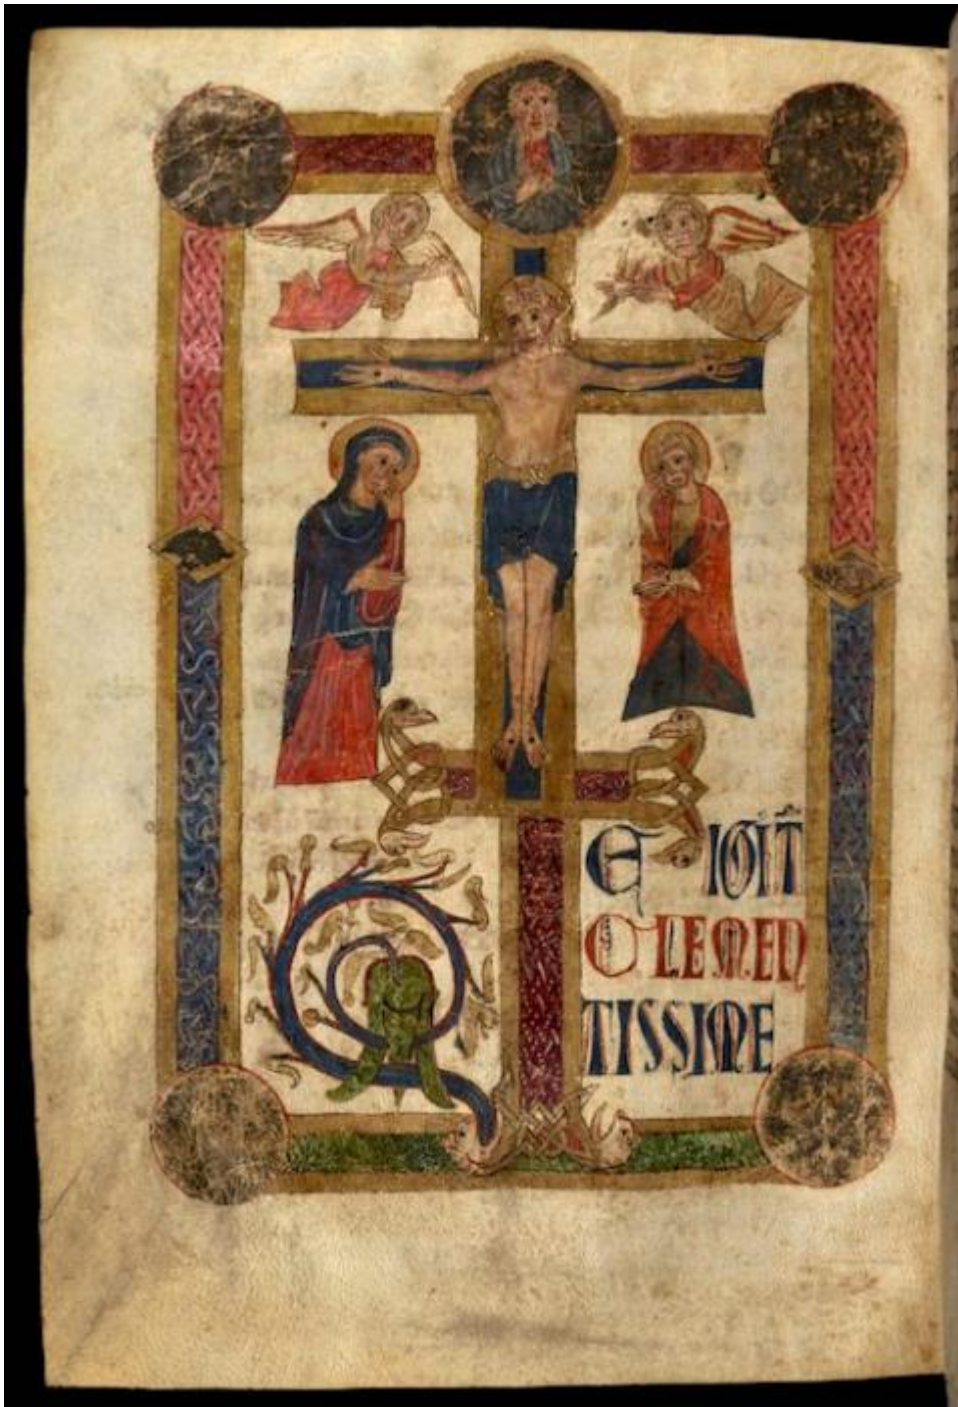 E IGIT̄
CLEMEN
TISSIME